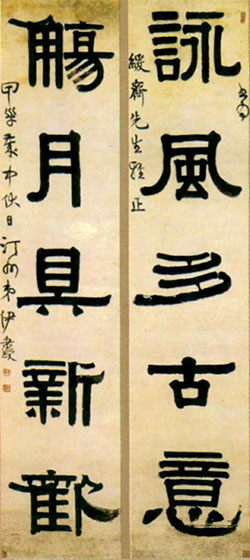 詠風多古意
齋先生雅正
觴月具新歡
甲中伏日汀州弟伊秉綬